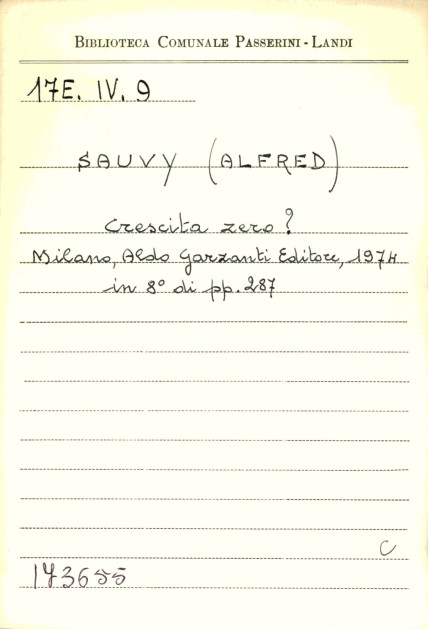 BIBLIOTECA COMUNALE PASSERINI-LANDI
17E. IV. 9
SAUVY (ALFRED)
Crescita zero?
Milano, Aldo Garzanti Editore, 1974
in 8° di pp. 287
C
173655